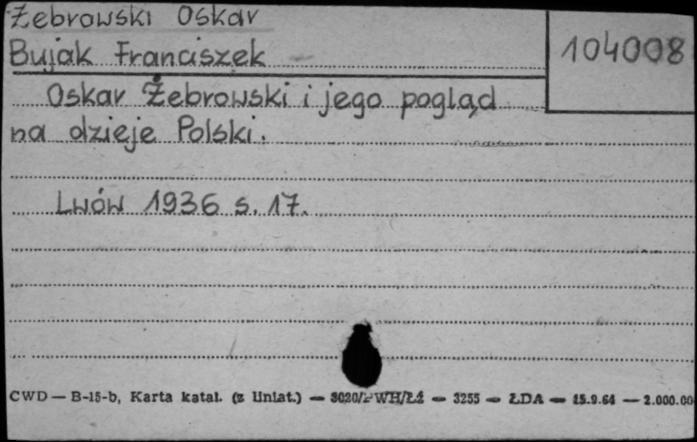 Żebrowski Oskar
Bujak Franciszek
104008
Oskar Żebrowski i jego pogląd
na dzieje Polski.
Lwów 1936 s. 17.
CWD — B-15-b, Karta katal. (z Uniat.) — WH/Łź — 3255 — ŁDA — 15.9.64 — 2.000.00